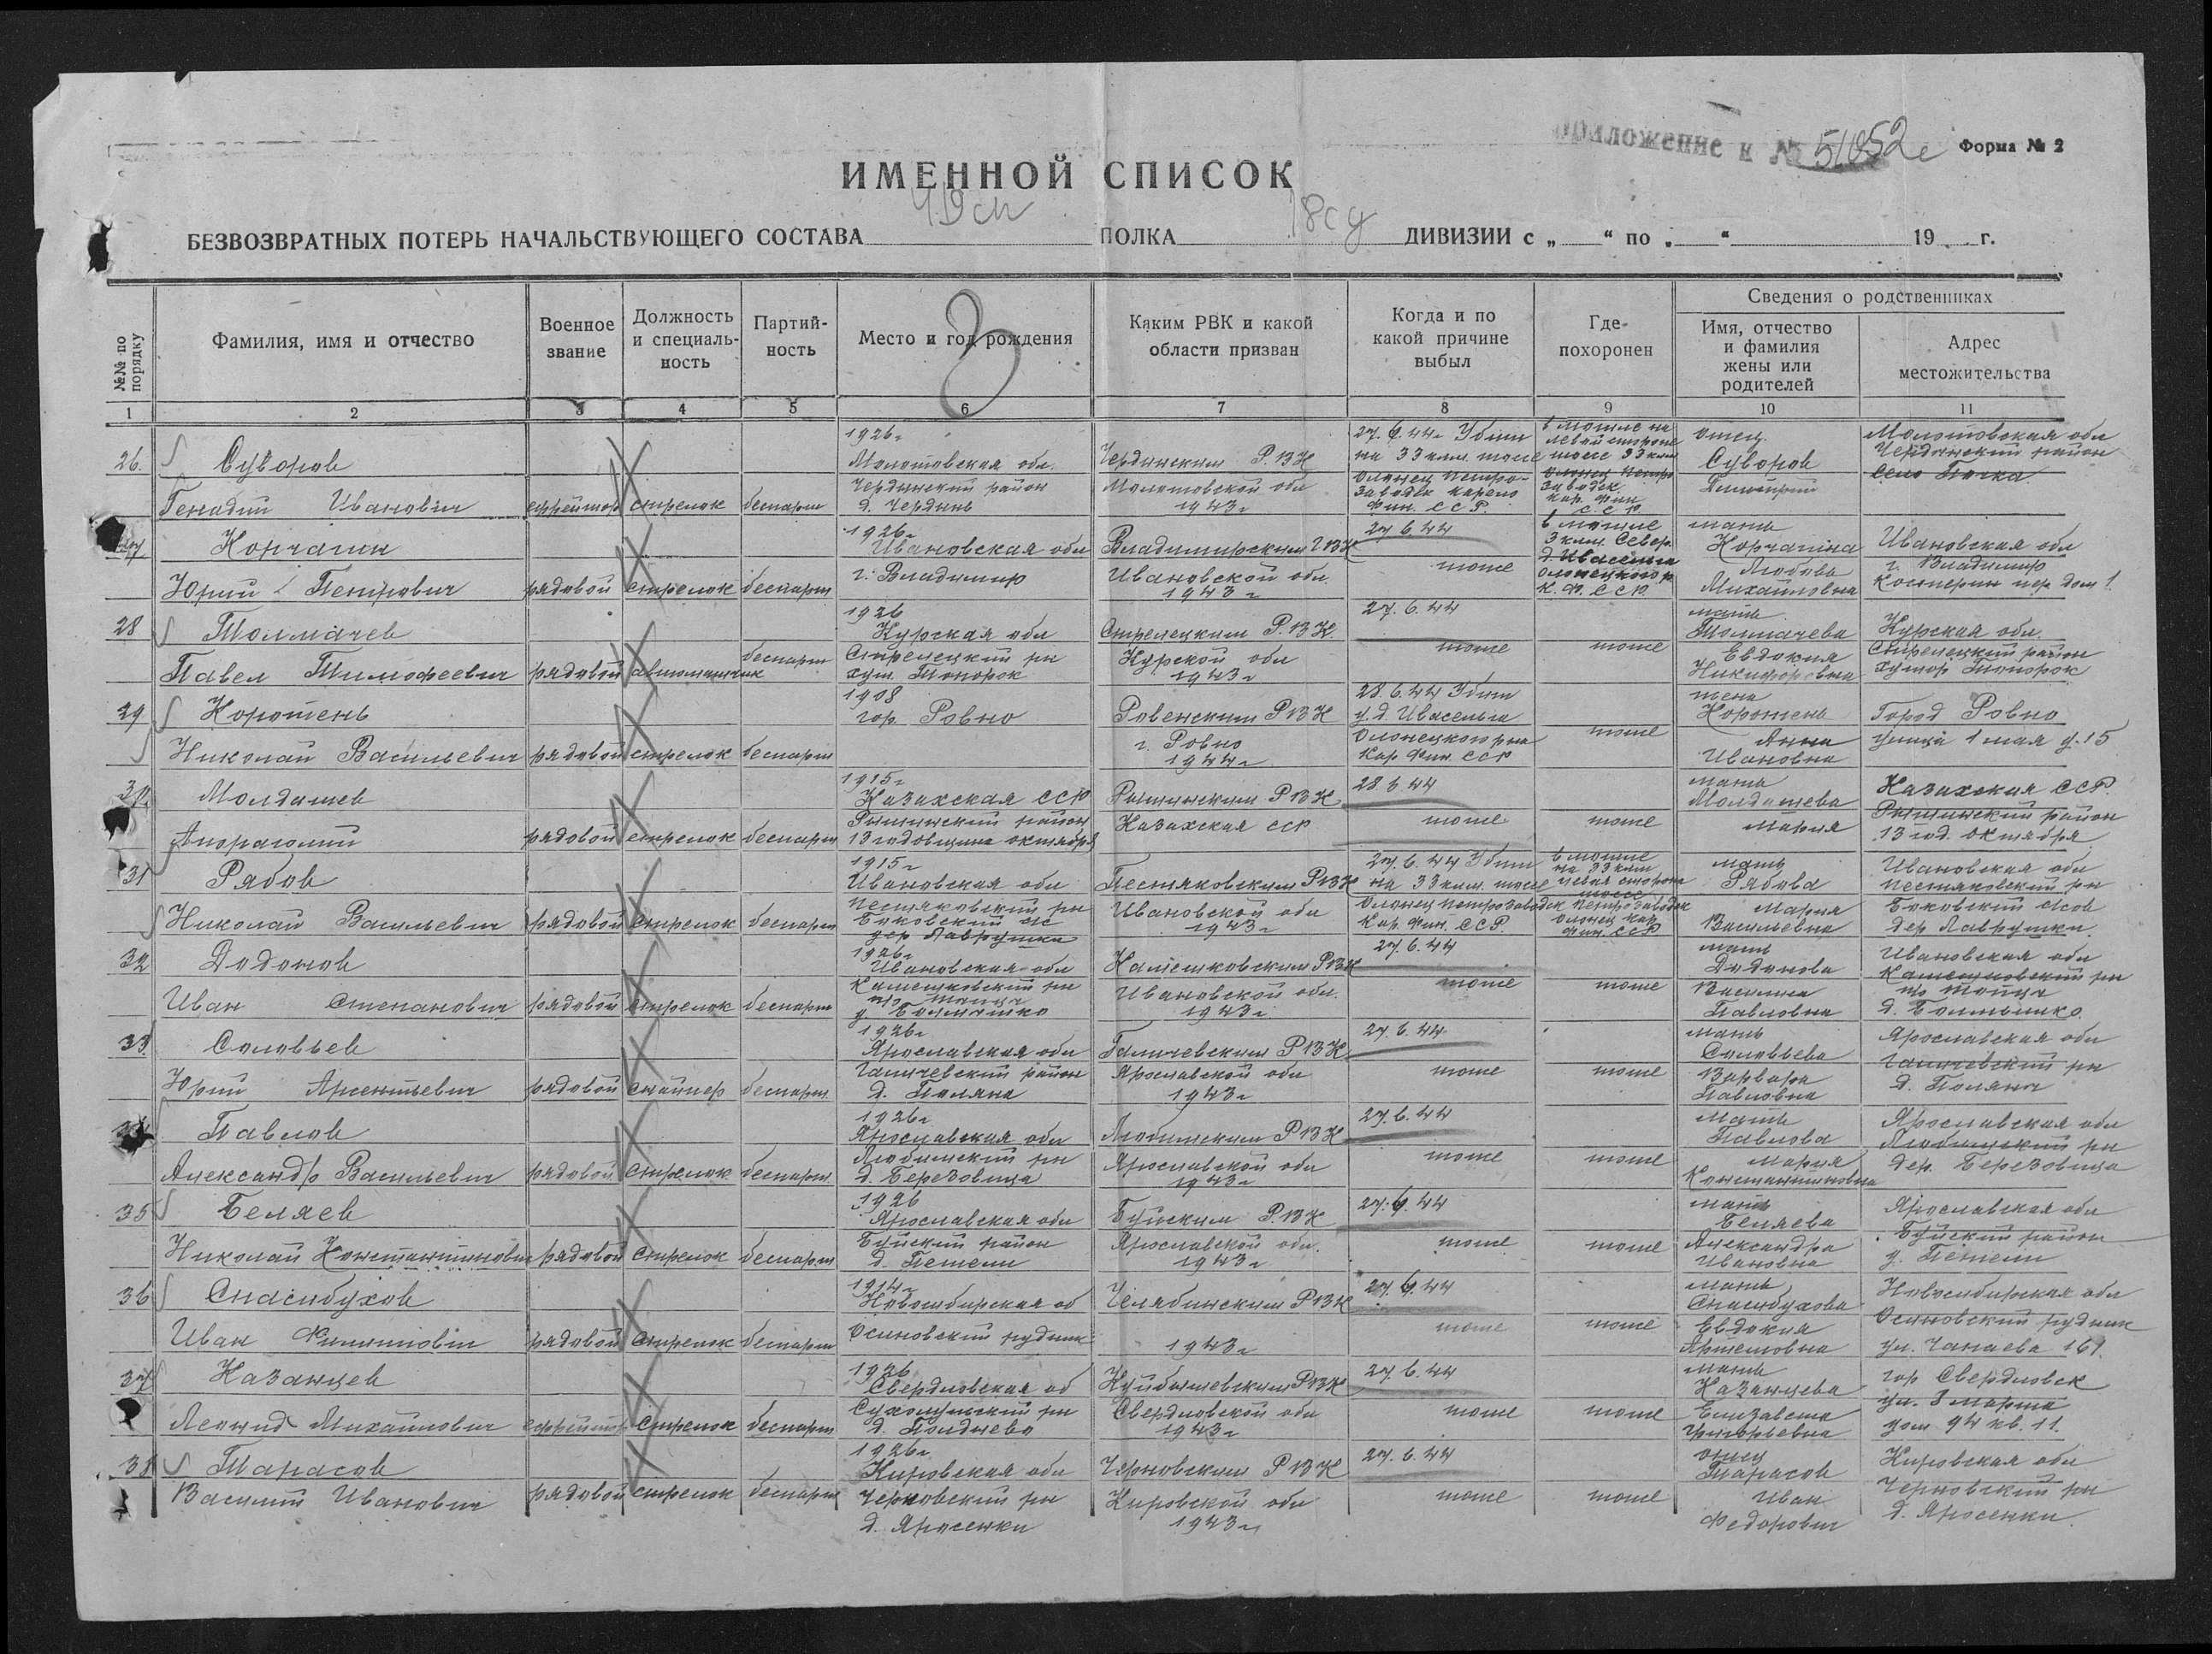 приложение к № 51052с Форма № 2
ИМЕННОЙ СПИСОК
БЕЗВОЗВРАТНЫХ ПОТЕРЬ НАЧАЛЬСТВУЮЩЕГО СОСТАВА ПОЛКА ДИВИЗИИ с „ “ по „ “ 19 г.
№№ по порядку
Фамилия, имя и отчество
Военное звание
Должность и специальность
Партийность
Место и год рождения
Каким РВК и какой области призван
Когда и по какой причине выбыл
Где похоронен
Сведения о родственниках
Имя, отчество и фамилия жены или родителей
Адрес местожительства
1 2 3 4 5 6 7 8 9 10 11
26. Суворов
Генадий Иванович ефрейтор стрелок беспарт
1926г Молотовская обл. Чердынский район д. Чердынь
Чердынским Р.В.К Молотовской обл 1943г
27.6.44г Убит на 33 клм. шоссе Олонец Петрозаводск Карело Фин. ССР.
в могиле на левой стороне шоссе 33 клм Олонец Петрозаводск Кар. Фин С.С.Р.
отец Суворов
Молотовская обл Чердынский район село
27 Корчагин
Юрий Петрович рядовой стрелок беспарт
1926г Ивановская обл г. Владимир
Владимирским ГВК Ивановской обл. 1943г
27.6.44 тоже
в могиле 3 клм. Север. д. Ивасельга Олонецкого р К.Ф.ССР.
мать Корчагина Любовь Михайловна
Ивановская обл г. Владимир
28 Толмачев
Павел Тимофеевич рядовой автоматчик беспарт
1926 Курская обл Стрелецкий рн хут. Топорок
Стрелецким Р.В.К. Курской обл 1943г
27.6.44 тоже тоже
мать Толмачева Евдокия Никифоровна
Курская обл. Стрелецкий район хутор Топорок
29 Коротень
Николай Васильевич рядовой стрелок беспарт
1908 гор. Ровно
Ровенским РВК г. Ровно 1944г
28.6.44 Убит у д. Ивасельга Олонецкого рна Кар Фин. ССР
тоже
жена Коротень Анна Ивановна
Город Ровно улица 1 мая д.15
30 Молдашев
рядовой стрелок беспарт
1915г Казахская ССР район 13 годовщина октября
РВК Казахская ССР
28 6 44 тоже тоже
мать Молдашева Мария
Казахская ССР. район 13 год. октября
31 Рябов
Николай Васильевич рядовой стрелок беспарт
1915г Ивановская обл Пестяковский рн Боковский с/с дер Лаврушки
Пестяковским РВК Ивановской обл 1943г
27.6.44 Убит на 33 клм. шоссе Олонец Петрозаводск Кар. Фин. ССР.
в могиле на 33 клм левая сторона шоссе Петрозаводск Олонец Кар. Фин. ССР
мать Рябова Мария Васильевна
Ивановская обл Пестяковский рн Боковский с/сов дер Лаврушки.
32 Додонов
Иван Степанович рядовой стрелок беспарт
1926г Ивановская обл Камешковский рн
Камешковским РВК Ивановской обл. 1943г
27.6.44 тоже тоже
мать Додонова Василиса Павловна
Ивановская обл Камешковский рн
33 Соловьев
Юрий Арсентьевич рядовой снайпер беспарт
1926г Ярославская обл Галичевский район д. Поляна
Галичевским РВК Ярославской обл 1943г
27.6.44 тоже тоже
мать Соловьева Варвара Павловна
Ярославская обл Галичевский рн д. Поляна
34 Павлов
Александр Васильевич рядовой стрелок беспарт
1926г Ярославская обл Любимский рн д. Березовица
Любимским РВК Ярославской обл 1943г
27.6.44 тоже тоже
мать Павлова Мария Константиновна
Ярославская обл Любимский рн дер. Березовица
35 Беляев
Николай Константинович рядовой стрелок беспарт
1926 Ярославская обл Буйский район
Буйским Р.ВК Ярославской обл. 1943г
27.6.44 тоже тоже
мать Беляева Александра Ивановна
Ярославская обл Буйский район
36 Спасибухов
Иван Филиппович рядовой стрелок беспарт
1914г Новосибирская об Осиновский рудник
Челябинским РВК 1943г
27.6.44 тоже тоже
мать Спасибухова Евдокия Артемовна
Новосибирская обл Осиновский рудник ул. Чапаева 161.
37 Казанцев
Леонид Михайлович ефрейтор стрелок беспарт
1926 Свердловская об Сухоложский рн
Куйбышевским РВК Свердловской обл 1943г
27.6.44 тоже тоже
мать Казанцева Елизавета Григорьевна
гор Свердловск ул. 8 марта дом 94 кв. 11.
38 Тарасов
Василий Иванович рядовой стрелок беспарт
1926г Кировская обл Черновский рн д. Яросенки
Черновским РВК Кировской обл 1943г
27.6.44 тоже тоже
отец Тарасов Иван Федорович
Кировская обл Черновский рн д. Яросенки.